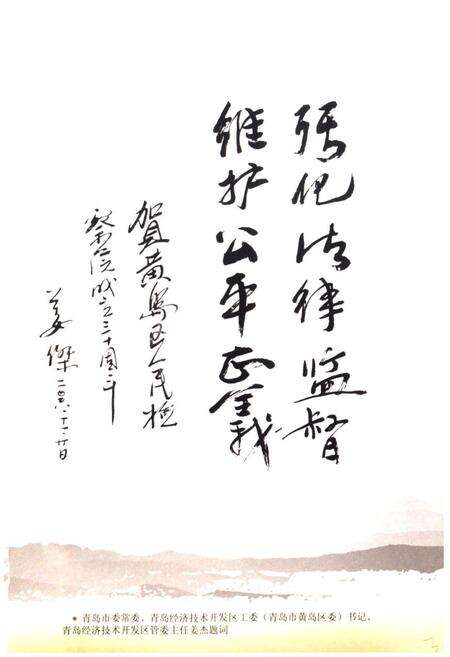 强化法律监督
维护公平正义
贺黄岛区人民检
察院成立三十周年
姜傑 二〇〇八.十一.廿日
•青岛市委常委、青岛经济技术开发区工委（青岛市黄岛区委）书记、
青岛经济技术开发区管委主任姜杰题词